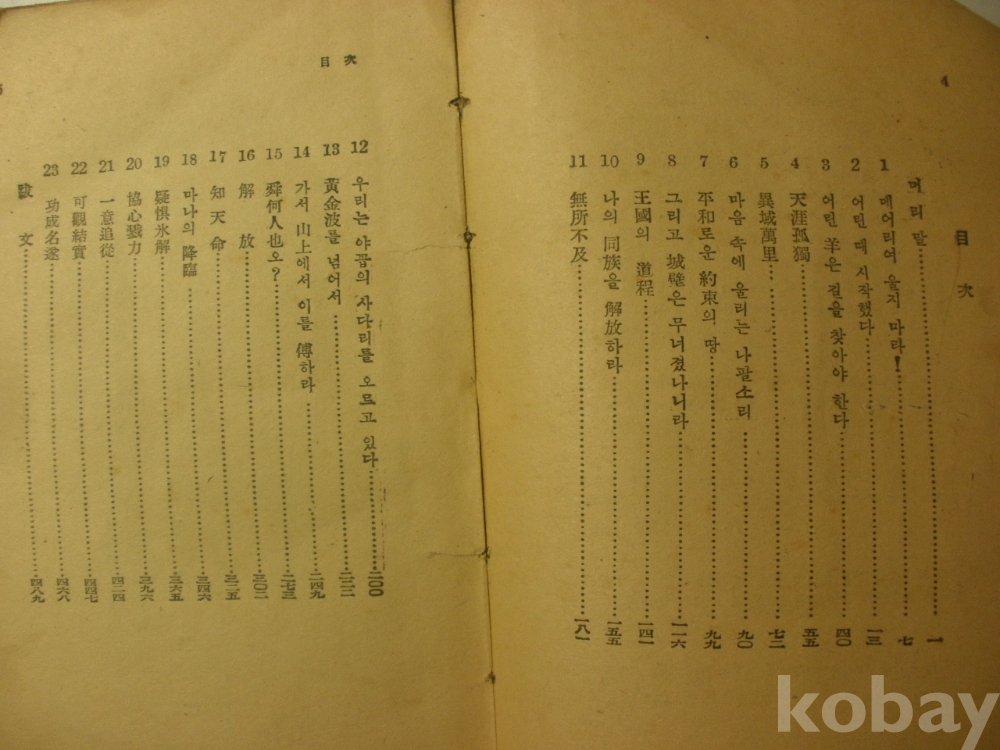 4
目次
머리말 一
1 메어리여 울지 마라! 七
2 어린 때 시작했다 一三
3 어린 羊은 길을 찾아야 한다 四〇
4 天涯孤獨 五五
5 異域萬里 七二
6 마음 속에 울리는 나팔소리 九〇
7 平和로운 約束의 땅 九九
8 그리고 城壁은 무너졌나니라 一一六
9 王國의 道程 一四一
10 나의 同族을 解放하라 一五五
11 無所不及 一八一
目次
12 우리는 야곱의 사다리를 오르고 있다 二〇〇
13 黃金波를 넘어서
14 가서 山上에서 이를 傳하라 二四九
15 舜何人也오? 二七三
16 解放 三〇二
17 知天命 三二五
18 마나의 降臨 三四六
19 疑懼氷解 三六五
20 協心戮力 三九六
21 一意追從 四二四
22 可觀結實 四四七
23 功成名遂 四六八
跋文 四八九
kobay